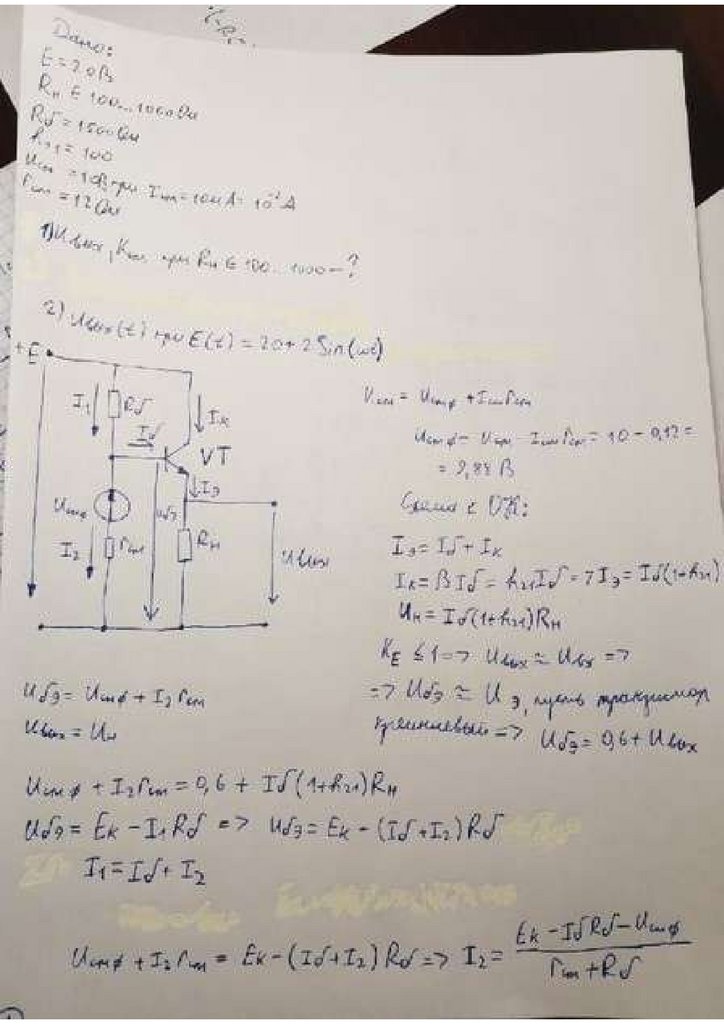 Дано:
E = 20В
Rн ∈ 100...1000 Ом
Rб = 1500 Ом
h21 = 100
Uст = 10В при Iст = 10мА = 10⁻² А
rст = 12 Ом
1) Uвых, Kст при Rн ∈ 100...1000 - ?
2) Uвых(t) при E(t) = 20 + 2 Sin(ωt)
+E
I1
Rб
Iк
Iб
VT
Iэ
Uстф
Uбэ
I2
rст
Rн
Uвых
Uст = Uстф + Iст rст
Uстф = Uст - Iст rст = 10 - 0,12 =
= 9,88 В
Схема с ОК:
Iэ = Iб + Iк
Iк = βIб = h21Iб => Iэ = Iб(1+h21)
Uн = Iб(1+h21)Rн
KE ≤ 1 => Uвых ≃ Uвх =>
=> Uбэ ≃ Uэ, пусть транзистор
кремниевый => Uбэ = 0,6 + Uвых
Uбэ = Uстф + I2 rст
Uвых = Uн
Uстф + I2 rст = 0,6 + Iб(1+h21)Rн
Uбэ = Eк - I1 Rб => Uбэ = Eк - (Iб + I2) Rб
I1 = Iб + I2
Uстф + I2 rст = Eк - (Iб + I2) Rб => I2 = Eк - IбRб - Uстф / rст + Rб